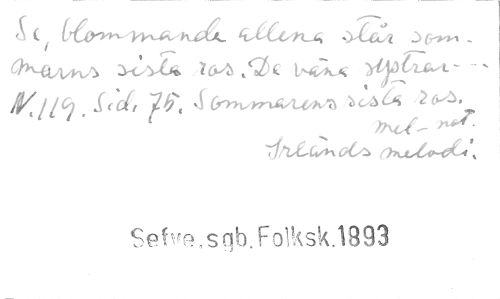 Se, blommande allena står som-
marns sista ros. De väna systrar---
N.119. Sid. 75. Sommarens sista ros.
mel-not.
Irländs melodi.
Sefve, sgb. Folksk. 1893